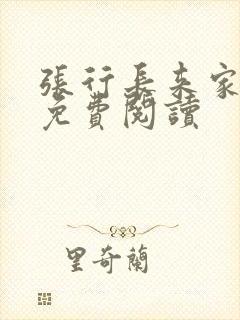 張行長來家
免費閱讀
里奇蘭